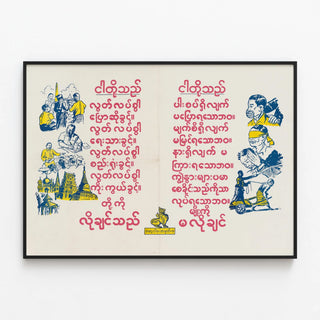 ငါတို့သည်
လွတ်လပ်စွာ
ပြောဆိုခွင့်။
လွတ်လပ်စွာ
ရေးသားခွင့်။
လွတ်လပ်စွာ
စည်းရုံးခွင့်။
လွတ်လပ်စွာ
ကိုးကွယ်ခွင့်။
တို့ကို
လိုချင်သည်
ငါတို့သည်
ပါးစပ်ရှိလျက်
မပြောရသောဘဝ။
မျက်စိရှိလျက်
မမြင်ရသောဘဝ။
နားရှိလျက် မ
ကြားရသောဘဝ။
ကျွဲနွားများပမာ
စေခိုင်းသည်ကိုသာ
လုပ်ရသောဘဝ။
မျိုးကို
မလိုချင်